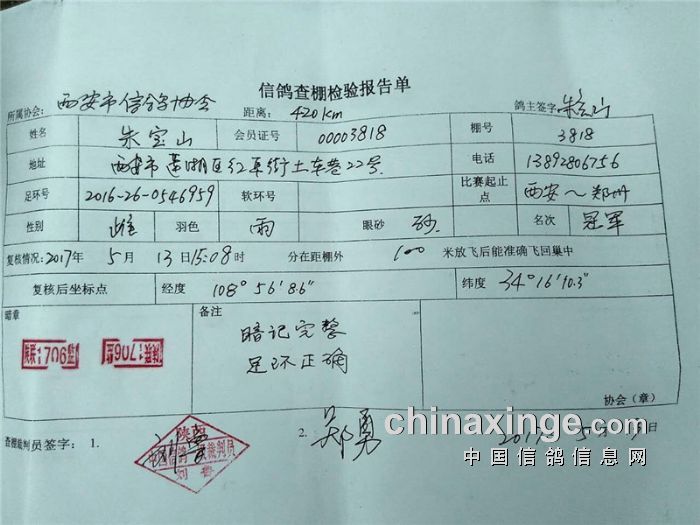 信鸽查棚检验报告单
所属协会: 西安市信鸽协会 距离: 420km 鸽主签字
姓名 朱宝山 会员证号 00003818 棚号 3818
地址 西安市莲湖区红阜街土车巷22号 电话 13892806756
足环号 2016-26-0546959 软环号 比赛起止点 西安~郑州
性别 雌 羽色 雨 眼砂 砂 名次 冠军
复核情况: 2017年 5月 13日15:08时 分在距棚外 100 米放飞后能准确飞回巢中
复核后坐标点 经度 108°56'8.6" 纬度 34°16'10.3"
暗章 备注
暗记完整
足环正确
1706
协会（章）
查棚裁判员签字: 1. 2. 郑勇 2017 5 日
裁判员
刘鲁
chinaxinge.com
中国信鸽信息网